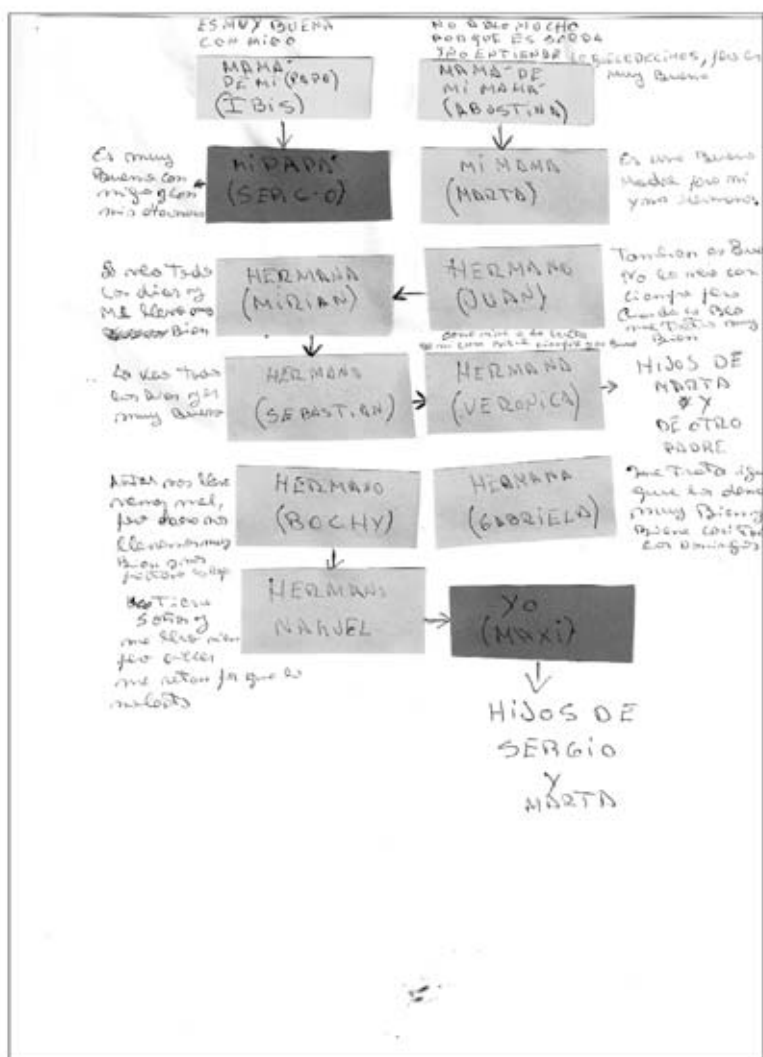 ES MUY BUENA
CON MIGO
NO ABLO MUCHO
PORQUE ES SORDA
Y NO ENTIENDE LO QUE LE DECIMOS, pero es
muy Buena
MAMÁ
DE MI (PAPÁ)
(IBIS)
MAMÁ DE
MI MAMÁ
(AGUSTINA)
Es muy
Bueno con
migo y con
mis
MI PAPÁ
(SERGIO)
MI MAMA
(MARTA)
Es una Buena
Madre para mi
y mis hermanos
Todo
los dias y
me llevo
Bien
HERMANA
(MIRIAN)
HERMANO
(JUAN)
Tambien es Bue
no lo veo con
ciempre pero
Cuando lo Beo
me trata muy
Bien
Lo veo Todo
los dias y es
muy Bueno
HERMANO
(SEBASTIAN)
HERMANA
(VERONICA)
HIJOS DE
MARTA
Y
DE OTRO
PADRE
Antes nos lleva
vamos mal,
pero
llevamos muy
Bien
HERMANO
(BOCHY)
HERMANA
(GABRIELA)
me Trata igu
que los demas
muy Bien y
Biene casi Todos
los Domingos
Tiene
me llevo bien
pero
me retan por que lo
molesto
HERMANO
NAHUEL
YO
(MAXI)
HIJOS DE
SERGIO
Y
MARTA